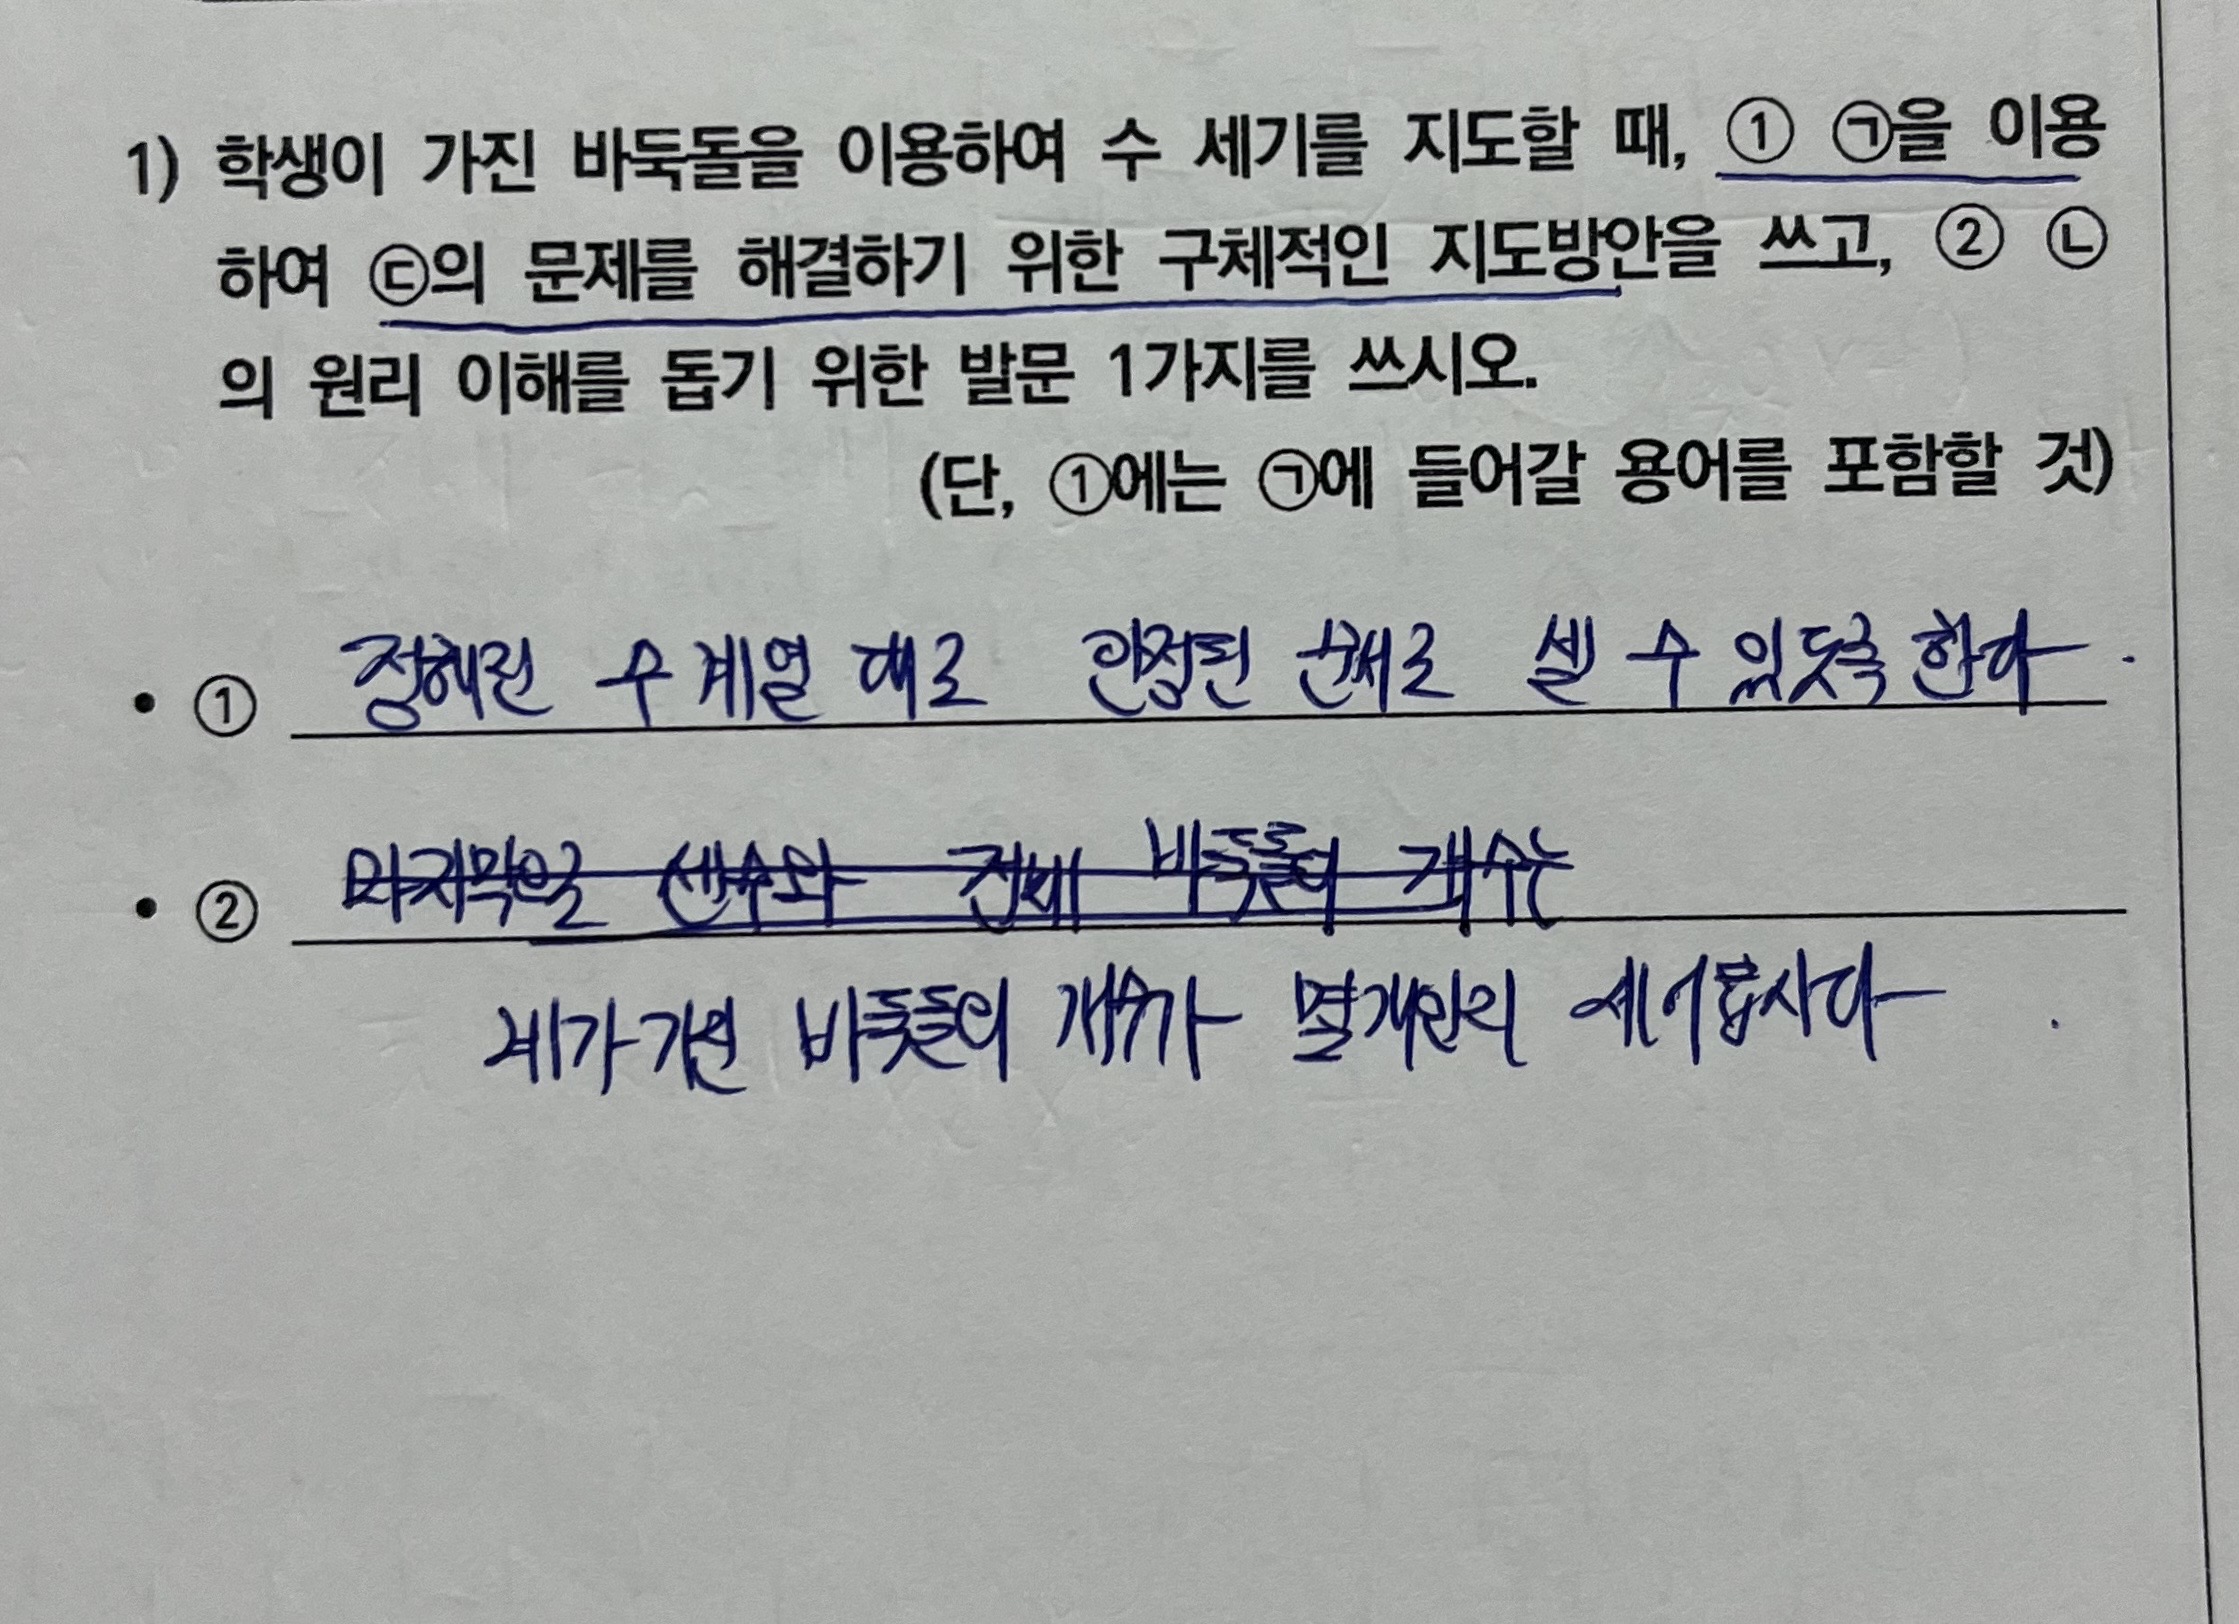 1) 학생이 가진 바둑돌을 이용하여 수 세기를 지도할 때, ① ㉠을 이용
하여 ㉢의 문제를 해결하기 위한 구체적인 지도방안을 쓰고, ② ㉡
의 원리 이해를 돕기 위한 발문 1가지를 쓰시오.
(단, ①에는 ㉠에 들어갈 용어를 포함할 것)
• ① 정해진 수 계열 대로 안정된 순서로 셀 수 있도록 한다.
• ② 마지막으로 센 수와 전체 바둑돌의 개수는
네가 가진 바둑돌의 개수가 몇개인지 세어봅시다.